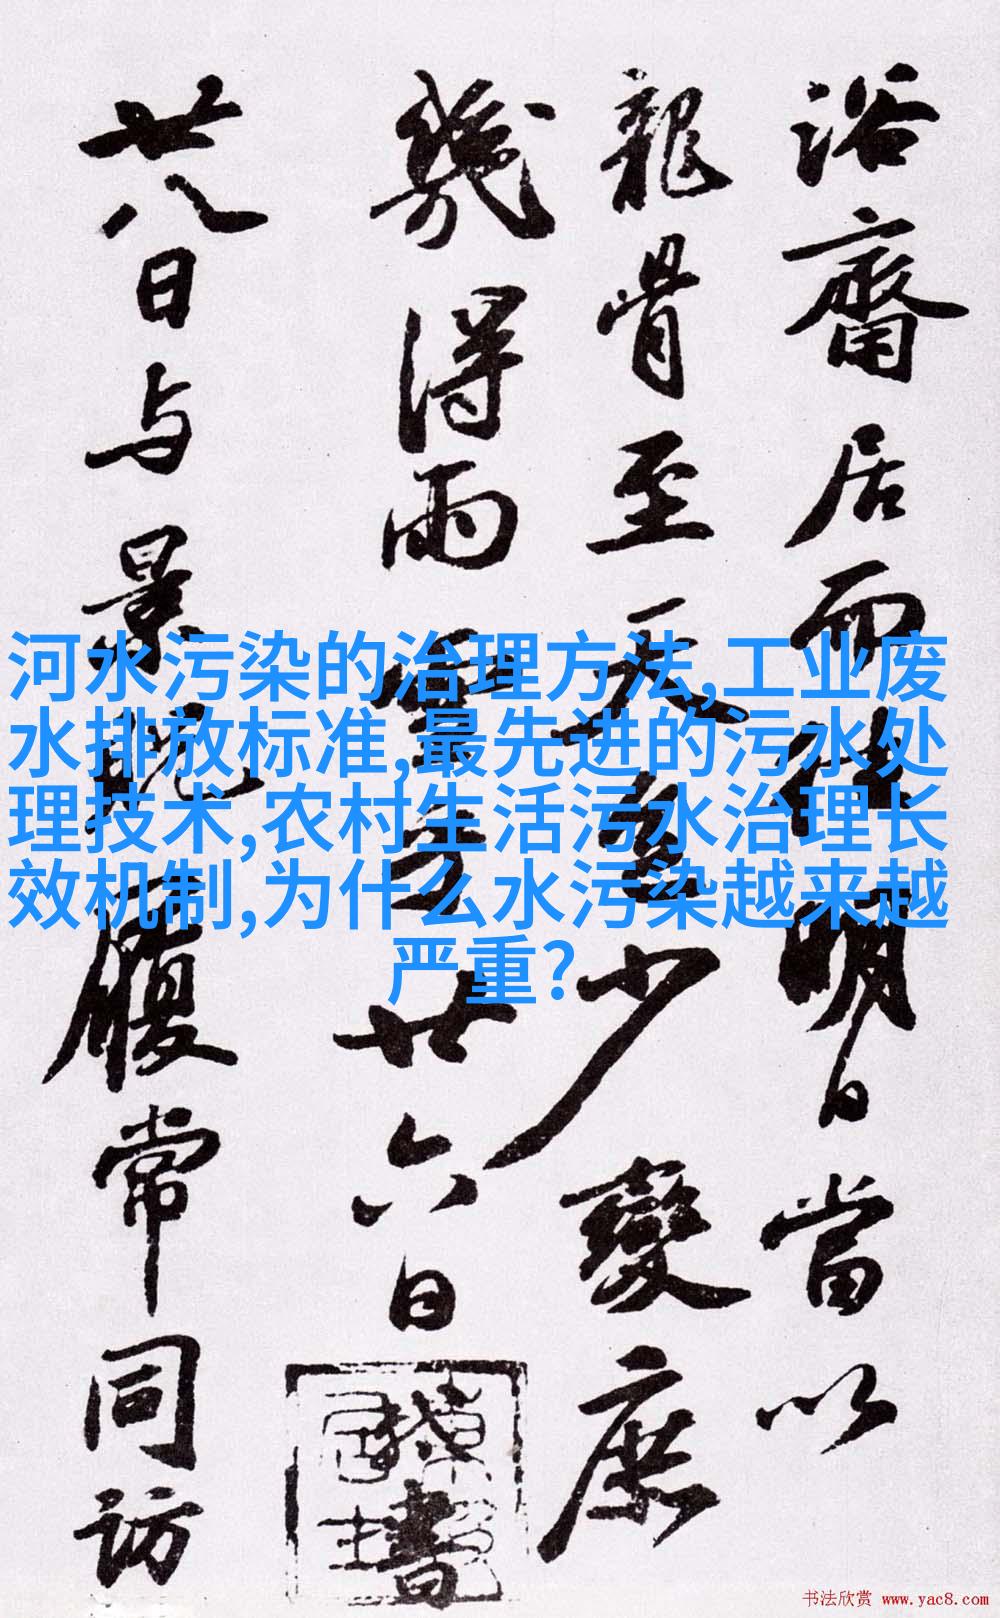 浴齋居而供明日當以
龍骨至天復少變庶
幾得雨
廿六日
書
廿八日与景
履常同訪
河水污染的治理方法,工业废
水排放标准,最先进的污水处
理技术,农村生活污水治理长
效机制,为什么水污染越来越
严重?
书法欣赏 www.yac8.com